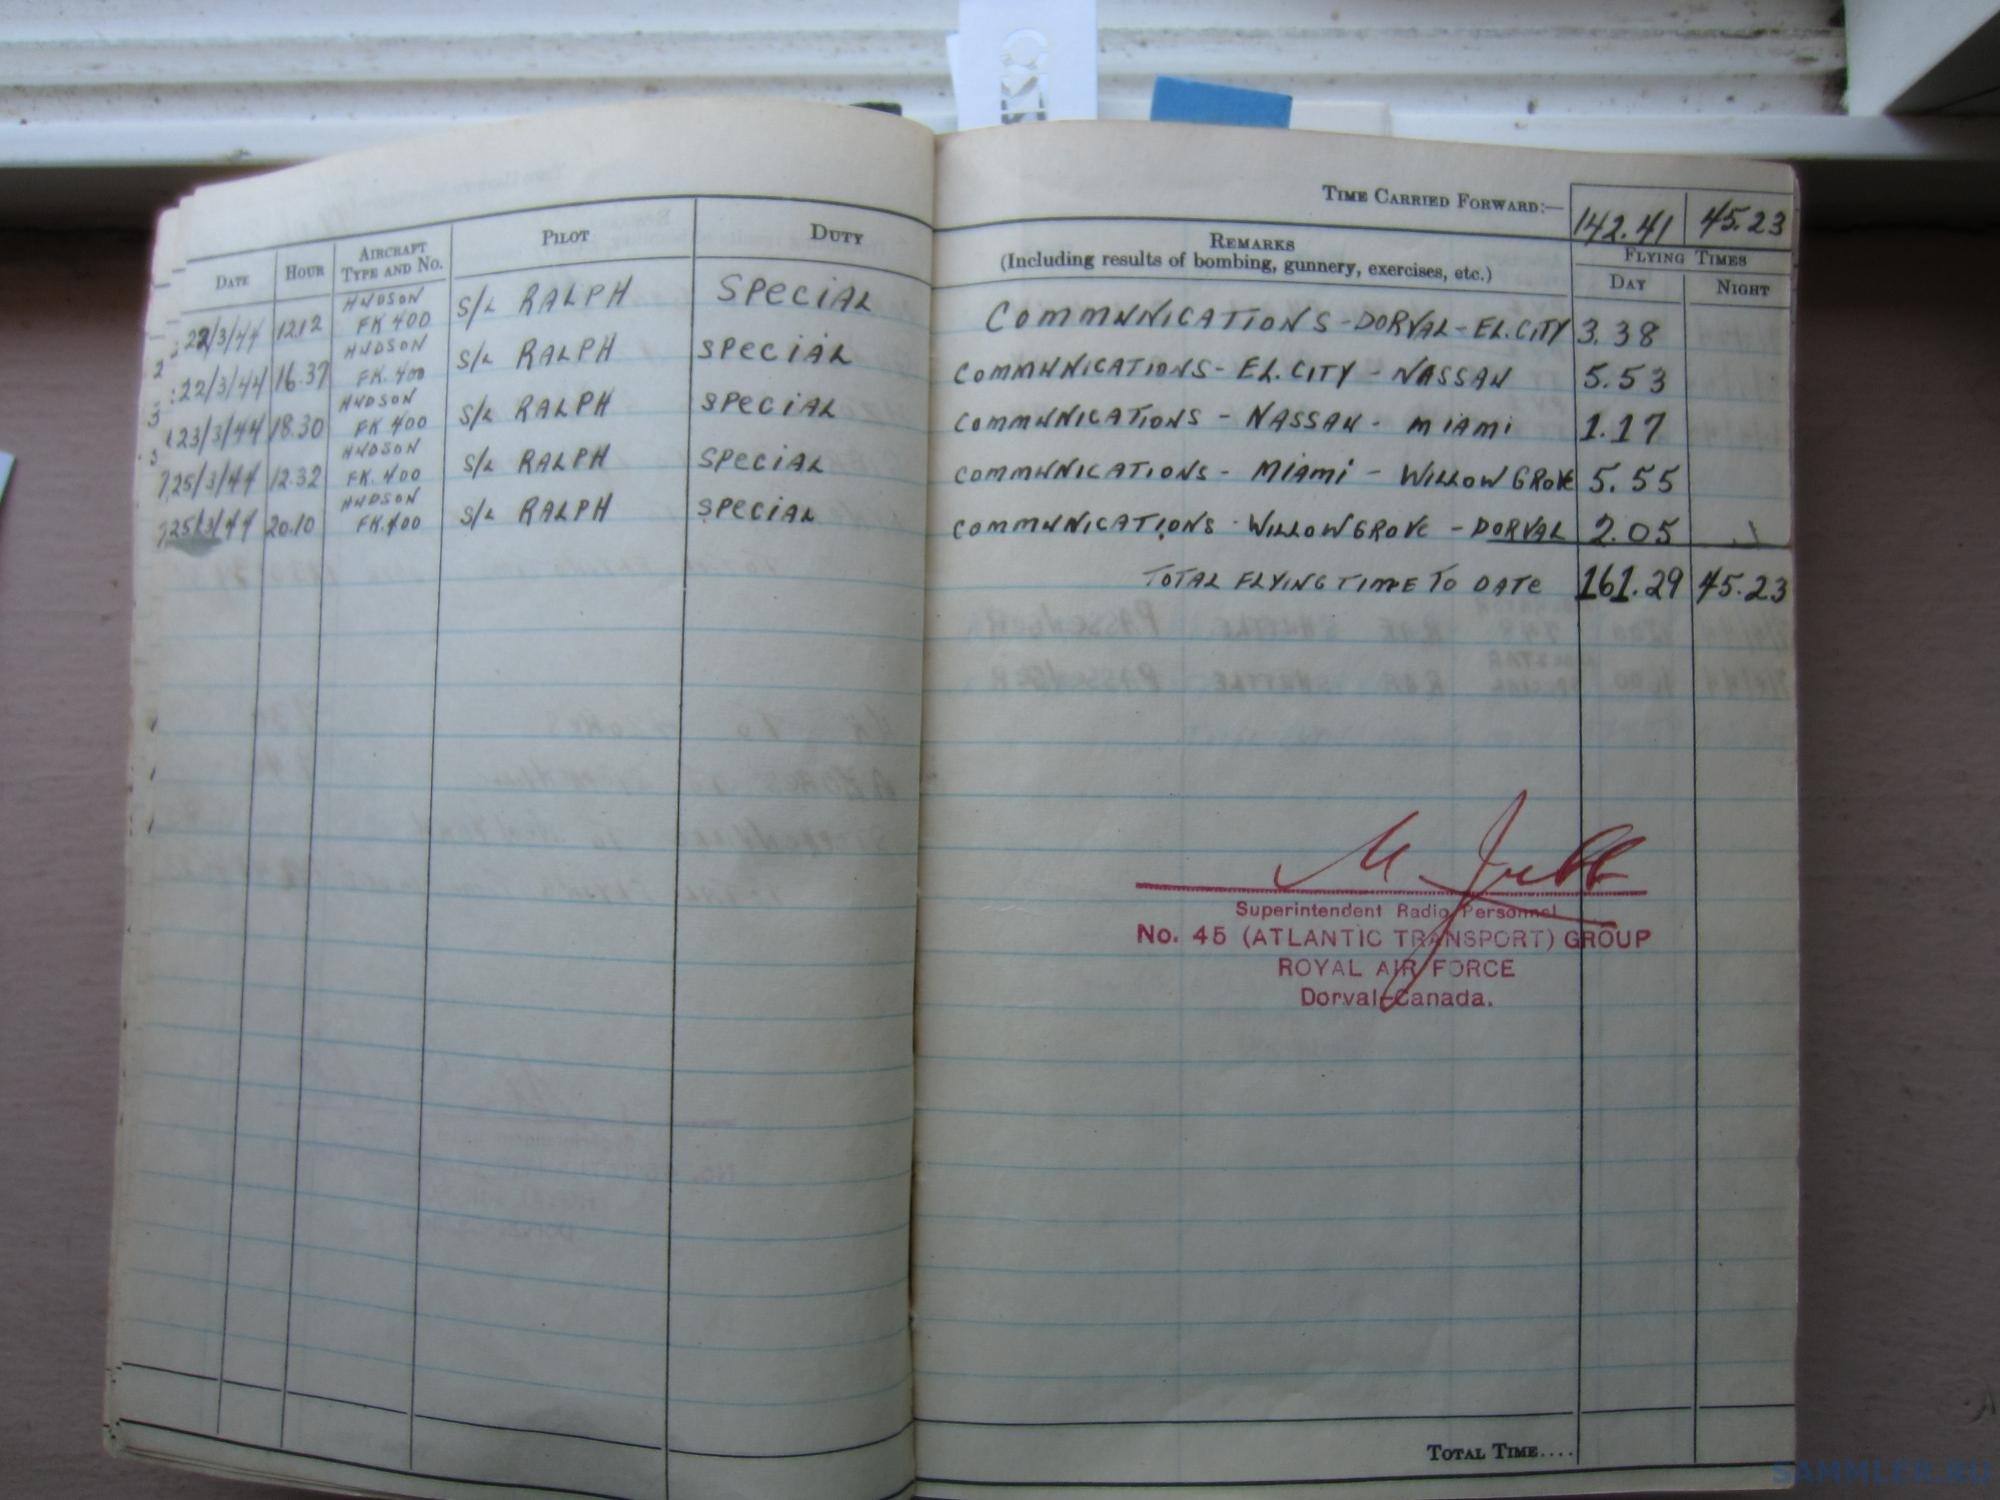 TIME CARRIED FORWARD:— 142.41 45.23
DATE HOUR AIRCRAFT TYPE AND No. PILOT DUTY
REMARKS
(Including results of bombing, gunnery, exercises, etc.)
FLYING TIMES
DAY NIGHT
22/3/44 1212 HUDSON FK 400 S/L RALPH SPECIAL COMMUNICATIONS - DORVAL - EL.CITY 3.38
22/3/44 16.37 HUDSON FK.400 S/L RALPH SPECIAL COMMUNICATIONS - EL.CITY - NASSAU 5.53
23/3/44 18.30 HUDSON FK 400 S/L RALPH SPECIAL COMMUNICATIONS - NASSAU - MIAMI 1.17
25/3/44 12.32 HUDSON FK.400 S/L RALPH SPECIAL COMMUNICATIONS - MIAMI - WILLOW GROVE 5.55
25/3/44 20.10 HUDSON FK.400 S/L RALPH SPECIAL COMMUNICATIONS - WILLOWGROVE - DORVAL 2.05
TOTAL FLYING TIME TO DATE 161.29 45.23
M. Jubb
Superintendent Radio Personnel
No. 45 (ATLANTIC TRANSPORT) GROUP
ROYAL AIR FORCE
Dorval-Canada.
TOTAL TIME....
SAMMLER.RU